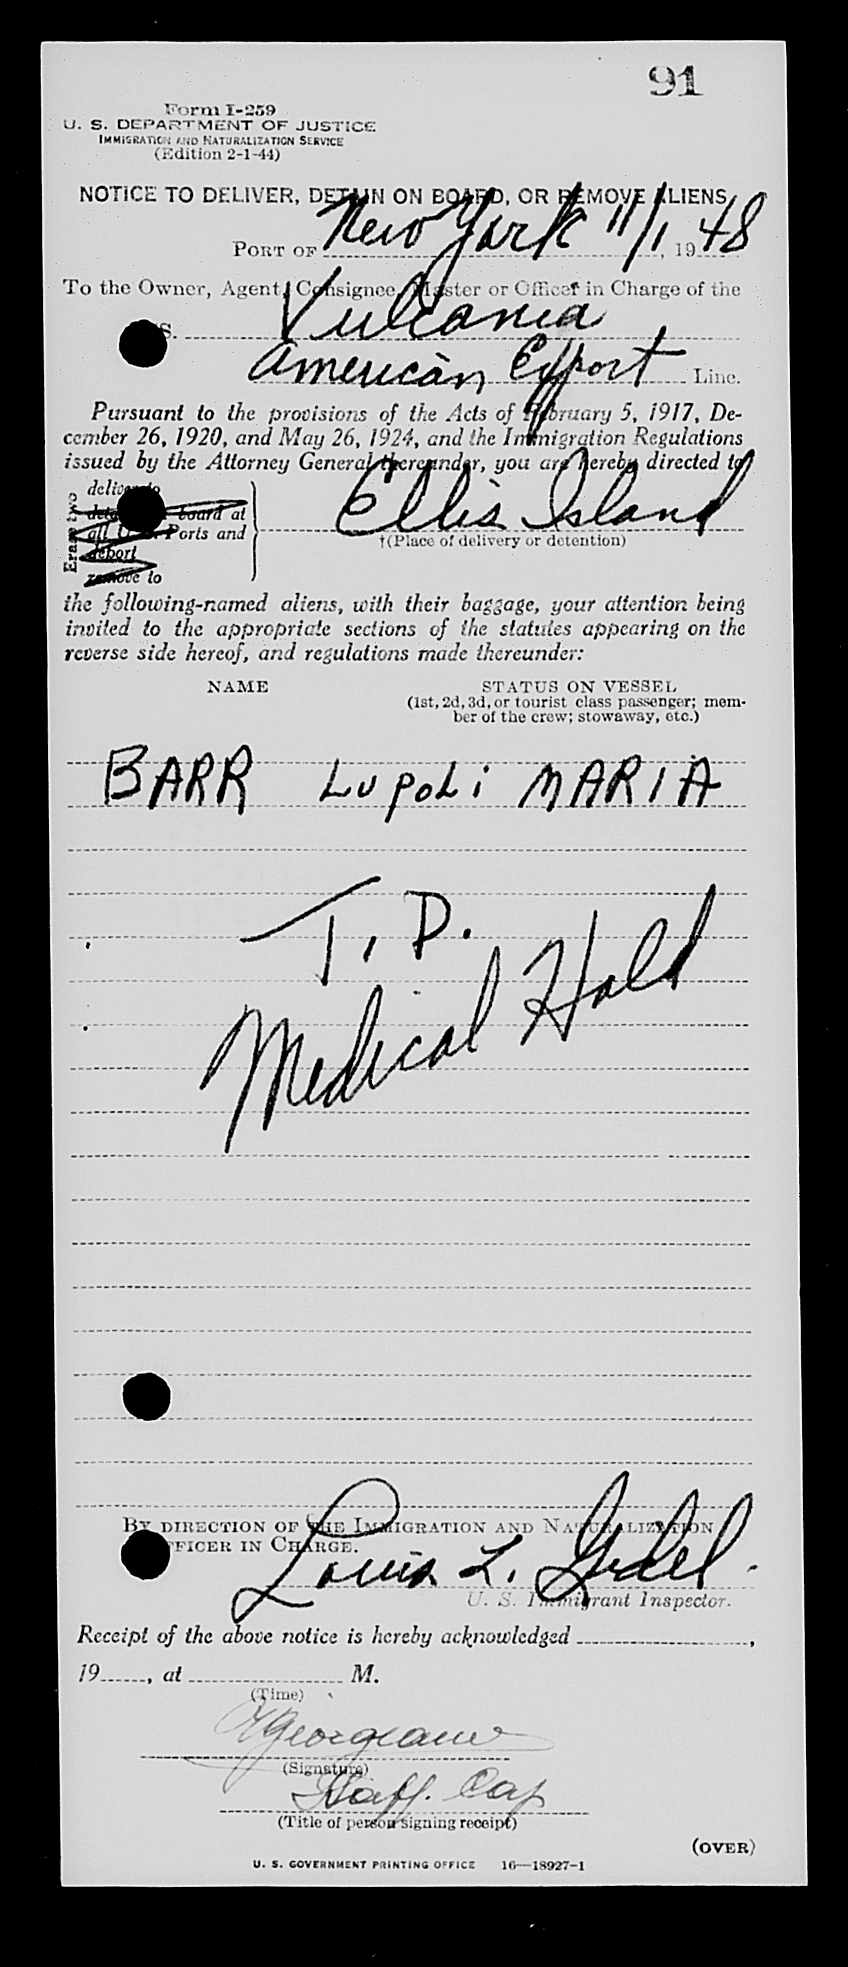 91
Form I-259
U. S. DEPARTMENT OF JUSTICE
IMMIGRATION AND NATURALIZATION SERVICE
(Edition 2-1-44)
NOTICE TO DELIVER, DETAIN ON BOARD, OR REMOVE ALIENS
PORT OF New York 11/1, 1948
To the Owner, Agent, Consignee, Master or Officer in Charge of the
S. Vulcania
American Export Line.
Pursuant to the provisions of the Acts of February 5, 1917, De-
cember 26, 1920, and May 26, 1924, and the Immigration Regulations
issued by the Attorney General thereunder, you are hereby directed to
Erase two
deliver to
detain on board at
all U. S. Ports and
deport
remove to
Ellis Island
†(Place of delivery or detention)
the following-named aliens, with their baggage, your attention being
invited to the appropriate sections of the statutes appearing on the
reverse side hereof, and regulations made thereunder:
NAME STATUS ON VESSEL
(1st, 2d, 3d, or tourist class passenger; mem-
ber of the crew; stowaway, etc.)
BARR LUPOLI MARIA
T. D.
Medical Hold
BY DIRECTION OF THE IMMIGRATION AND NATURALIZATION
OFFICER IN CHARGE.
Louis L.
U. S. Immigrant Inspector.
Receipt of the above notice is hereby acknowledged ,
19 , at M.
(Time)
(Signature)
Staff. Cap
(Title of person signing receipt)
(OVER)
U. S. GOVERNMENT PRINTING OFFICE 16—18927-1